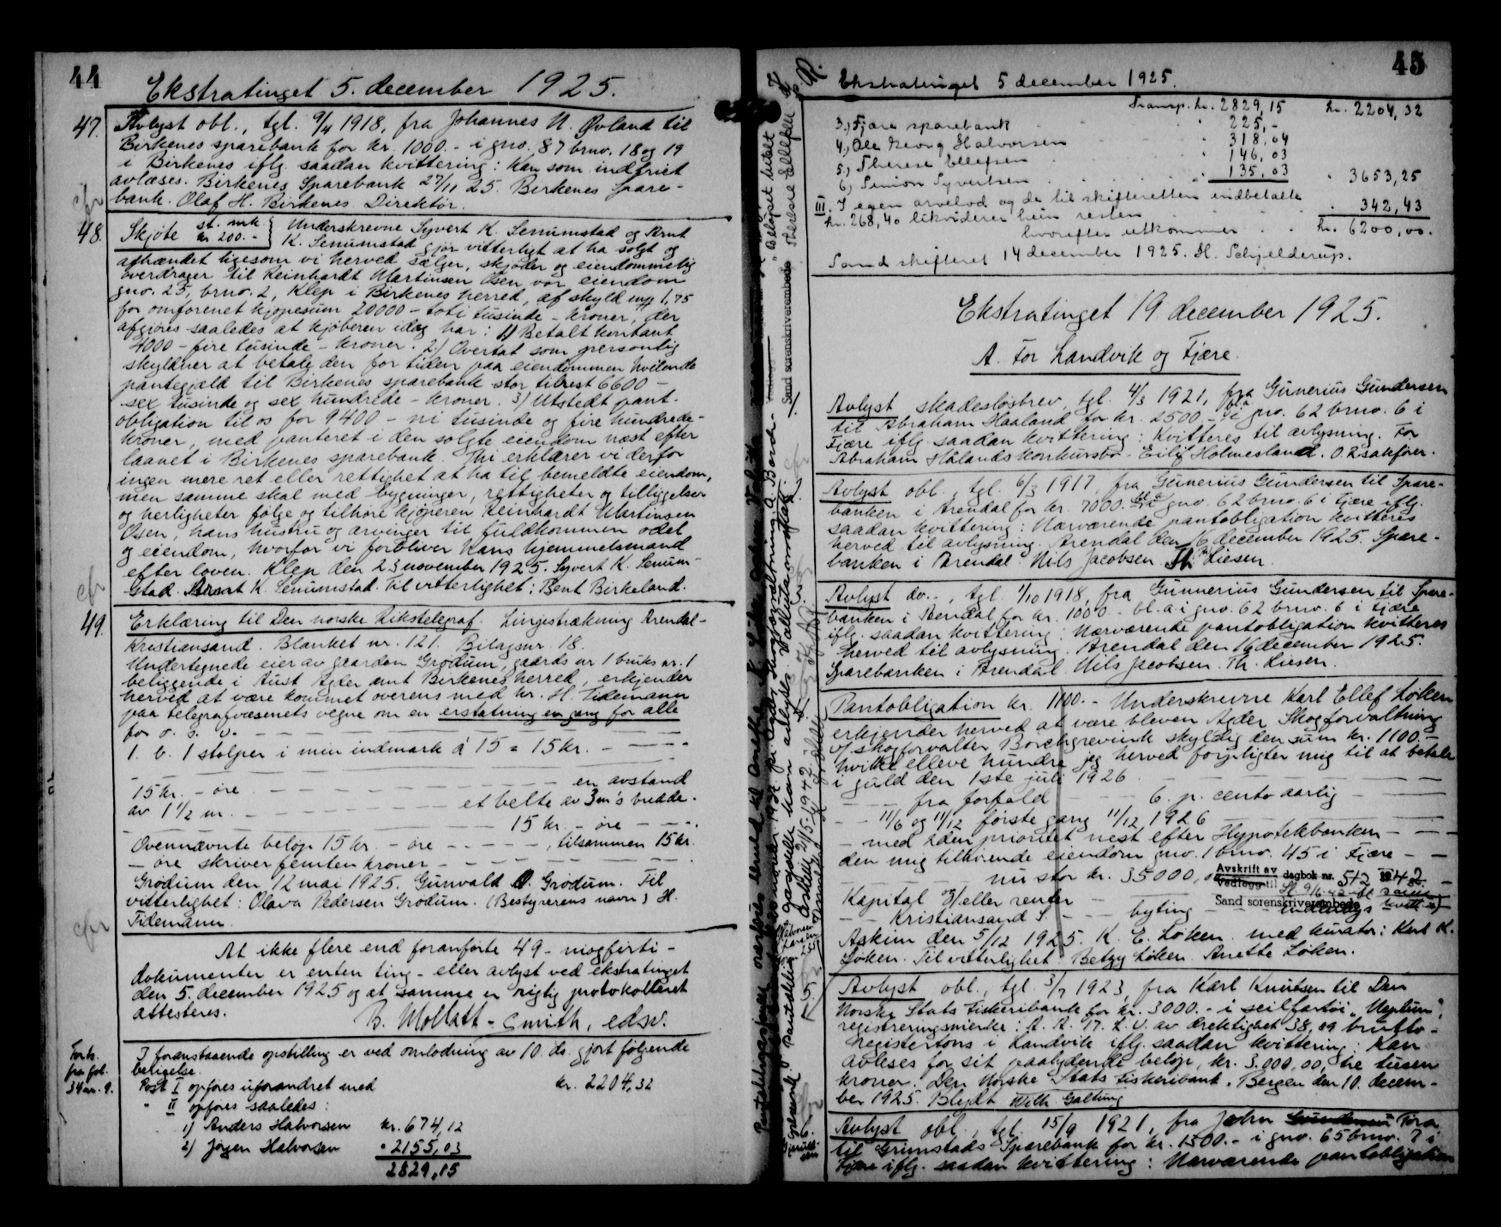 44
Ekstratinget 5. december 1925.
47. Avlyst obl., tgl. 9/4 1918, fra Johannes N. Øvland til
Birkenes sparebank for kr. 1000.- i gno. 87 brno. 18 og 19
i Birkenes iflg. saadan kvittering: Kan som indfriet
avlæses. Birkenes Sparebank 27/11 25. Birkenes Spare-
bank. Olaf H. Birkenes Direktør.
48. Skjøte st. mrk kr 200.- Underskrevne Syvert K. Senumstad og Knut
K. Senumstad gjør vitterligt at ha solgt og
avhændet ligesom vi herved sælger, skjøder og eiendommelig
overdrager til Reinhardt Martinsen Osen vor eiendom
gno. 25, brno. 2, Klep i Birkenes herred, af skyld mrk 1,75
for omforenet kjøpesum 20000 - toti tusinde - kroner, der
afgjøres saaledes at kjøberen idag har: 1) Betalt kontant
4000 - fire tusinde - kroner. 2) Overtat som personlig
skyldner at betale den for tiden paa eiendommen hvilende
pantegjæld til Birkenes sparebank stor tilrest 6600 -
sex tusinde og sex hundrede - kroner. 3) Utstedt pant-
obligation til os for 9400 - ni tusinde og fire hundrede-
kroner, med panteret i den solgte eiendom næst efter
laanet i Birkenes sparebank. Thi erklærer vi derfor
ingen mere ret eller rettighet at ha til bemeldte eiendom,
men samme skal med bygninger, rettigheter og tilliggelser
og herligheter følge og tilhøre kjøperen Reinhardt Martinsen
Osen, hans hustru og arvinger til fuldkommen odel
og eiendom, hvorfor vi forbliver hans hjemmelsmænd
efter loven. Klep den 23 november 1925. Syvert K. Senum-
stad. Knut K. Senumstad. Til vitterlighet: Bent Birkeland.
49. Erklæring til Den norske Rikstelegraf. Linjestrækning Arendal-
Kristiansand. Blanket nr. 121. Bilagsnr. 18.
Undertegnede eier av gaarden Grødum, gaards nr 1 bruks nr. 1
beliggende i Aust Agder amt Birkenes herred, erkjender
herved at være kommet overens med hr. H. Tidemann
paa telegrafvæsenets vegne om en erstatning en gang for alle
for o. s. v.
1. b. 1 stolper i min indmark à 15 = 15 kr. -
15 kr. - øre - en avstand
av 1 1/2 m. - et belte av 3 m's bredde.
15 kr. - øre
Ovennævnte beløp 15 kr - øre - , tilsammen 15 kr.
- øre skriver femten kroner -
Grødum den 12 mai 1925. Gunvald O. Grødum. Til
vitterlighet: Olava Pedersen Grødum. (Bestyrerens navn) H.
Tidemann.
At ikke flere end foranførte 49 - niogførti -
dokumenter er enten ting- eller avlyst ved ekstratinget
den 5. december 1925 og at samme er rigtig protokolleret
attesteres.
B. Mollatt-Smith, edsv.
Forts. fra fol. 34 nr. 9.
I foranstaaende opstilling er ved omlodning av 10 ds. gjort følgende
beligelse.
Post I opføres uforandret med kr. 2204,32
" II opføres saaledes:
1) Anders Halvorsen kr. 674,12
2) Jørgen Halvorsen " 2155,03
2829,15
45
Ekstratinget 5 december 1925.
Transp. kr. 2829,15 kr. 2204,32
3) Fjære sparebank " 225,-
4) Ole Georg Halvorsen " 318,04
5) Therese Ellefsen " 146,03
6) Simion Syvertsen " 135,03 " 3653,25
III I egen arvelod og de til skifteretten indbetalte
kr. 268,40 likviderer hun resten " 342,43
hvorefter utkommer kr. 6200,00.
Sand skifteret 14 december 1925. H. Schjelderup.
Ekstratinget 19 december 1925.
A. For Landvik og Fjære.
Avlyst skadesløsbrev, tgl. 4/3 1921, fra Gunerius Gundersen
til Abraham Haaland for kr. 2500.- i bl.a. gno. 62 brno. 6 i
Fjære iflg. saadan kvittering: Kvitteres til avlysning. For
Abraham Hålands konkursbo. Eilif Holmesland. O.R.sakfører.
Avlyst obl., tgl. 6/3 1917, fra Gunerius Gundersen til Spare-
banken i Arendal for kr. 7000.- i bl.a. gno. 62 brno. 6 i Fjære iflg.
saadan kvittering: Nærværende pantobligation kvitteres
herved til avlysning. Arendal den 16 december 1925. Spare-
banken i Arendal. Nils Jacobsen. Th. Liesen.
Avlyst do., tgl. 1/10 1918, fra Gunnerius Gundersen til Spare-
banken i Arendal for kr. 1000.- bl. a. i gno. 62 brno. 6 i Fjære
iflg. saadan kvittering: Nærværende pantobligation kvitteres
herved til avlysning. Arendal den 16 december 1925.
Sparebanken i Arendal. Nils Jacobsen. Th. Liesen.
Pantobligation kr. 1100.- Underskrevne Karl Ellef Løken
erkjender herved at være bleven Agder Skogforvaltning
v/ skogforvalter Borchgrevink skyldig den sum kr. 1100.-
hvilke elleve hundre jeg herved forpligter mig til at betale
i guld den 1ste juli 1926.
fra forfald - 6. p. cento aarlig -
- 11/6 og 11/12 første gang 11/12 1926
- med 2den prioritet næst efter Hypotekbanken -
den mig tilhørende eiendom gno. 1 brno. 45 i Fjære -
nu stor kr. 35000,-
Avskrift av dagbok nr. 512 1942
Vedlegg til
Sand sorenskriverembede
Kapital og/eller renter
- Kristiansand S. - byting -
Askim den 5/12 1925. K. E. Løken. med kurator: Karl K.
Løken. Til vitterlighet: Betzy Løken. Anette Løken.
Avlyst obl., tgl. 3/7 1923, fra Karl Knutsen til Den
Norske Stats Fiskeribank for kr. 3000.- i seilfartøi „Neptun",
registreringsmerke: A. A. 17. L. V. av drektighet 38,09 brutto-
registertons i Landvik iflg. saadan kvittering: Kan
avlæses for sit paalydende beløp, kr. 3.000,00, tre tusen
kroner. Den Norske Stats Fiskeribank. Bergen den 10. decem-
ber 1925. Blydt Wilh Galtung
Avlyst obl., tgl. 15/9 1921, fra John Gundersen Fjæra
til Grimstads Sparebank for kr. 1500.- i gno. 65 brno. 7 i
Fjære iflg. saadan kvittering: Nærværende pantobligation